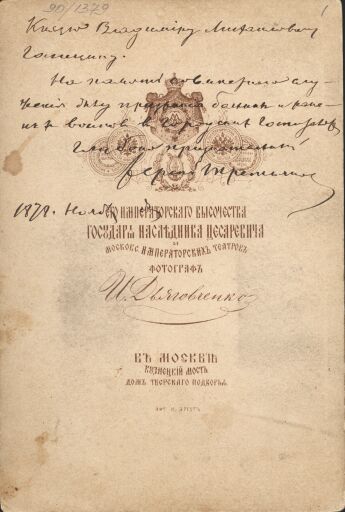 90/1379
1
Князю Владиміру Михайловичу
Голицыну.
На память о
дѣлу призрѣнія больныхъ и ране-
ныхъ воиновъ въ
Глубоко
Сергѣй Третьяковъ
1878. Ноябр
ЕГО ИМПЕРАТОРСКАГО ВЫСОЧЕСТВА
ГОСУДАРЯ НАСЛѢДНИКА ЦЕСАРЕВИЧА
И
МОСКОВС. ИМПЕРАТОРСКИХЪ ТЕАТРОВЪ
ФОТОГРАФЪ
И. Дьяговченко
ВЪ МОСКВѢ
КУЗНЕЦКІЙ МОСТЪ
ДОМЪ ТВЕРСКАГО ПОДВОРЬЯ.